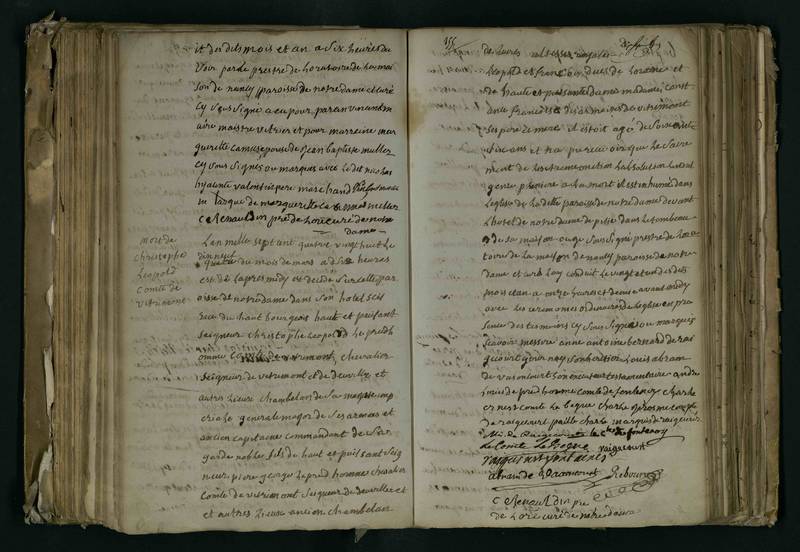 et des dits mois et an a six heures du
soir par le prestre de l'oratoire de la mai
son de nancy paroisse de notre dame et curé
cy sous signé a eu pour parain vincent
maistre vitrier et pour marreine mar
guerite camus epouse de Jean baptiste muller
cy sous signés ou marqués avec le dit nicolas
hyacinte valon le pere marchand
marque de marguerite camus muller
C Renauldin pre de l'ore curé de notre
dame
mort de
christophe
leopold
comte de
vitrimont
L'an mille sept cent quatre vingt huit le
vinneuf du mois de mars a dix heures
est de l'apres midy est decedé sur cette par
oisse de notre dame dans son hotel scis
rue du haut bourgeois haut et puissant
seigneur christophe leopold le prudh
omme comte de vitrimont, chevalier
seigneur de vitrimont et de deuville et
autres lieux chambelan de sa majesté imp
eriale general major de ses armées et
ancien capitaine commandant de ses
gardes nobles, fils de haut et puissant seig
neur pierre george le prudhomme chevalier
comte de vitrimont seigneur de deuville et
et autres lieux ancien chambelan
155
de leurs altesses royales
leopold et francois ducs de loraine et
de haute et puissante dame madame const
ance francoise des armoises de vitrimont
ses pere et mere. il etoit agé de soixante
dix ans et n'a pu recevoir que le sacre
ment de l'extreme onction l'absolution et indul
gence pleniere a la mort il est inhumé dans
l'eglise de la dite paroisse de notre dame devant
l'hotel de notre dame de pitié dans le tombeau
de sa maison ou je sous signé prestre de l'ora
toire de la maison de nancy paroisse de notre
dame et curé l'ay conduit le vingt et un des dits
mois et an a onze heures et demie avant midy
avec les ceremonies ordinaires de l'eglise en pre
sence des temoins cy sous signés ou marqués
scavoir messire anne antoine bernard de rai
gecourt gournay son heritier louis abram
de vaxoncourt son executeur testamentaire andre
louis de prudhomme comte de fontenoy charle
ernest comte le begue charle
de raigecourt paille charle marquis de raigecourt
de fontenoy
le Comte Le Begue raigecourt
abram de Vaxoncourt
C Renauldin pre
de l'ore curé de notre dame